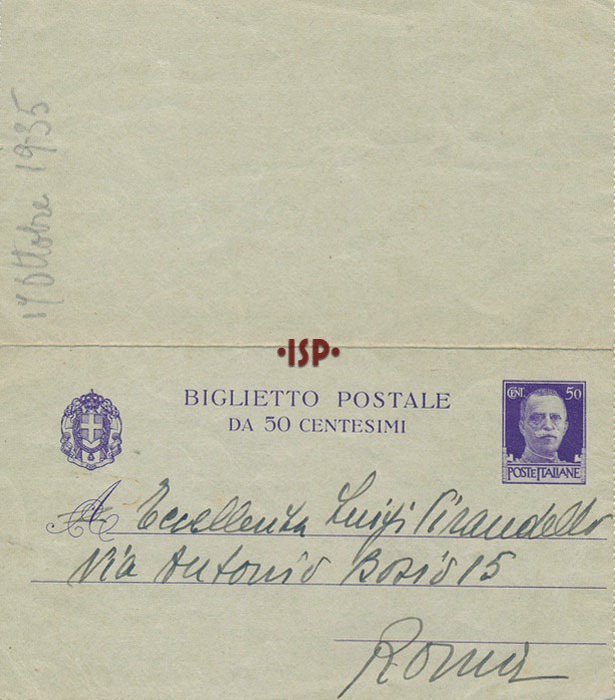 17 Ottobre 1935
·ISP·
BIGLIETTO POSTALE
DA 50 CENTESIMI
CENT. 50
POSTE ITALIANE
A Eccellenza Luigi Pirandello
Via Antonio Bosio 15
Roma